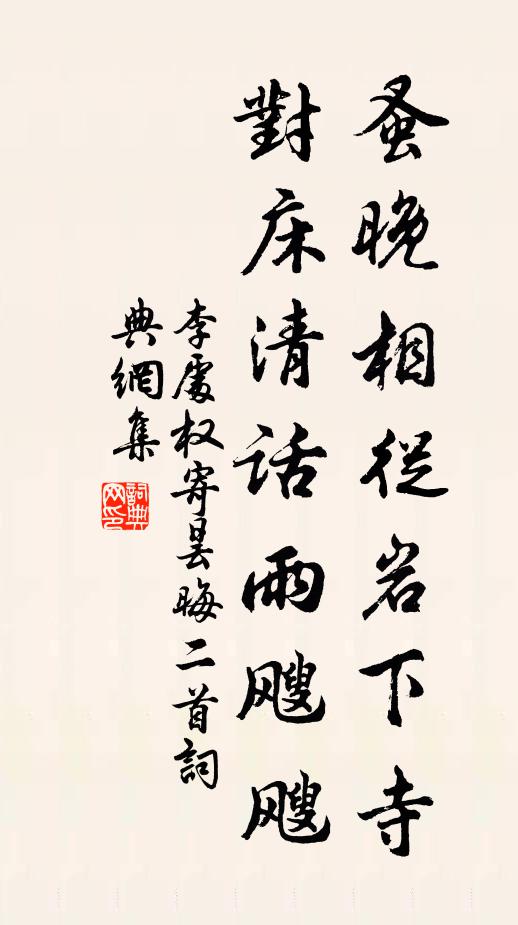 蚤晚相從岩下寺
對床清話雨颼颼
李處权寄昙晦二首詞
典網集
詞典
网印